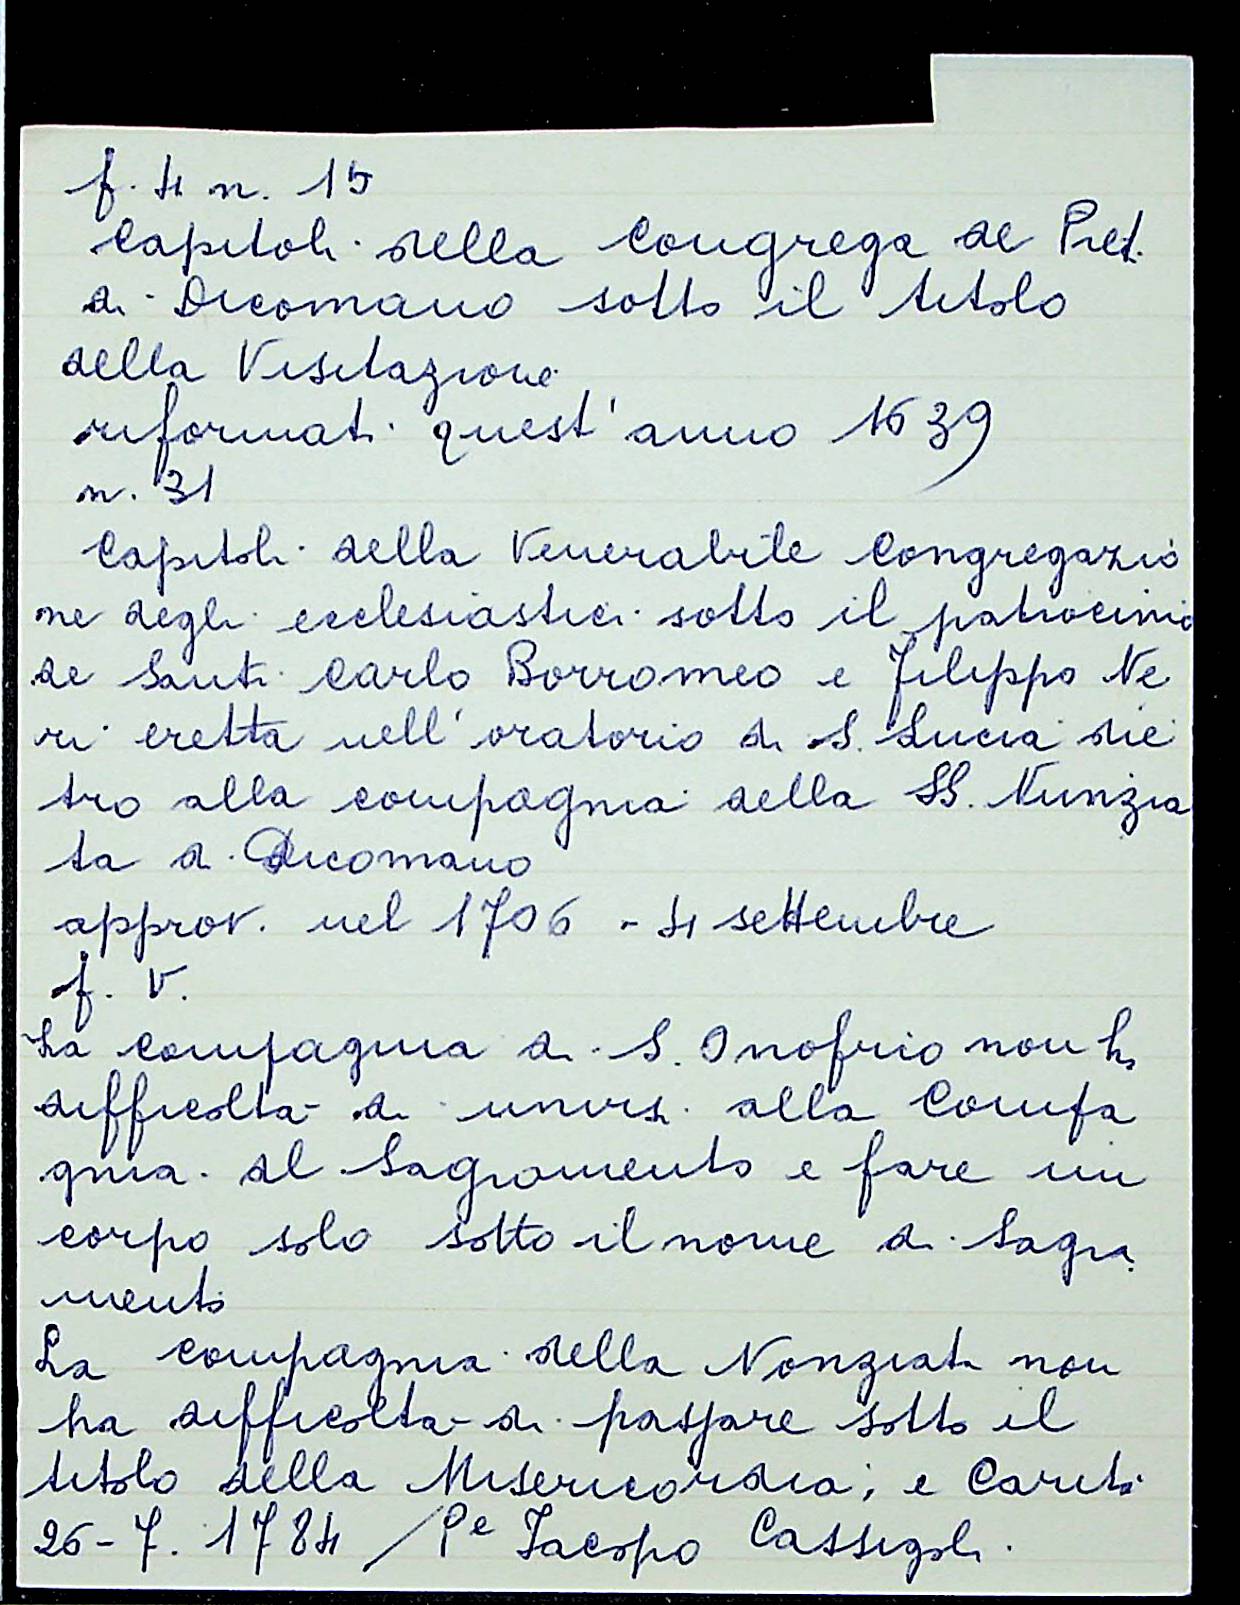 f. 4 n. 15
Capitoli della Congrega de Pret.
di Dicomano sotto il titolo
della Visitazione
riformati quest'anno 1639
n. 31
Capitoli della Venerabile Congregazio
ne degli ecclesiastici sotto il patrocinio
de Santi Carlo Borromeo e Filippo Ne
ri eretta nell'oratorio di S. Lucia die
tro alla compagnia della SS. Nunzia
ta di Dicomano
approv. nel 1706 - 4 settembre
f. V.
La compagnia di S. Onofrio non ha
difficoltà di unirsi alla Compa
gnia del Sagramento e fare un
corpo solo sotto il nome di Sagra
mento
La compagnia della Nonziata non
ha difficoltà di passare sotto il
titolo della Misericordia, e Carità
26-7. 1784 / Pe Jacopo Cassigoli.